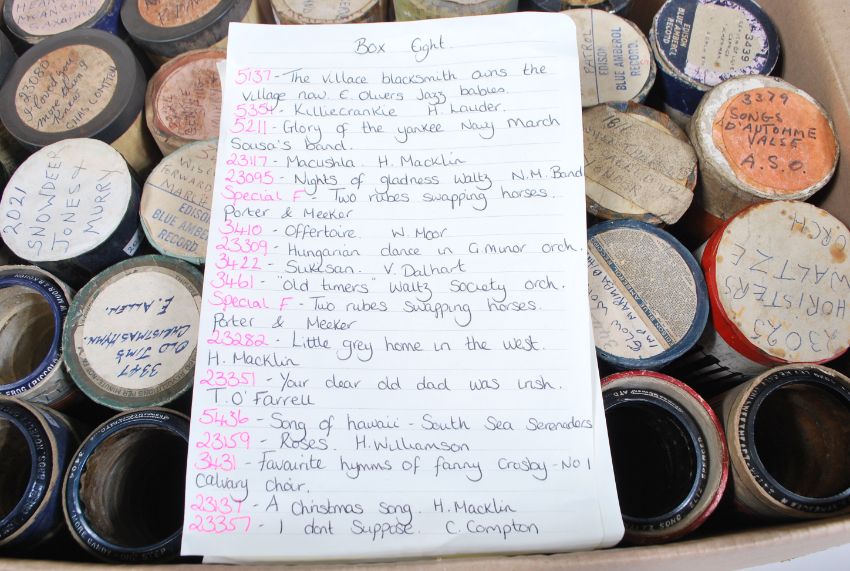 Box Eight.
5137 - The village blacksmith owns the
village now E. Olivers Jazz babies.
5354 - Killiecrankie H. Lauder.
5211 - Glory of the yankee Navy March
Sousa's band.
23117 - Macushla. H. Macklin
23095 - Nights of gladness waltz N.M. Band
Special F - Two rubes swapping horses.
Porter & Meeker
3410 - Offertoire. W. Moor.
23309 - Hungarian dance in G. minor orch.
3422 - "Sukisan. V. Dalhart
3461 - "Old timers" Waltz society orch.
Special F - Two rubes swapping horses.
Porter & Meeker
23282 - Little grey home in the west.
H. Macklin
23351 - Your dear old dad was irish.
T. O'Farrell
5436 - Song of hawaii - South Sea Serenaders
23159 - Roses. H. Williamson
3431 - Favourite hymns of fanny Crosby - No 1
Calvary choir.
23137 - A Christmas song. H. Macklin
23357 - I dont Suppose. C. Compton
23080
I loved you
more
CHAS COMPTON
2021
SNOWDEER
JONES &
MURRY
MARCH
EDISON
BLUE AMBEROL
RECORD.
RECORD.
3347
OLD TIMS
CHRISTMAS HYMN
E. ALLEN.
PATROL
EDISON
BLUE AMBEROL
RECORD
EDISON
BLUE AMBEROL
RECORD
3379
SONGS
D'AUTOMME
VALSE
A.S.O.
Glow Worm
23093
WALTZE
ORCH